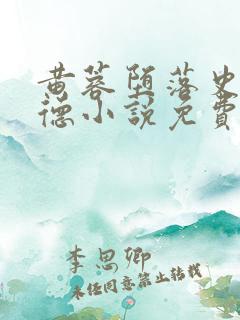 黄蓉堕落史
德小説免費
李思卿
未经同意禁止转载